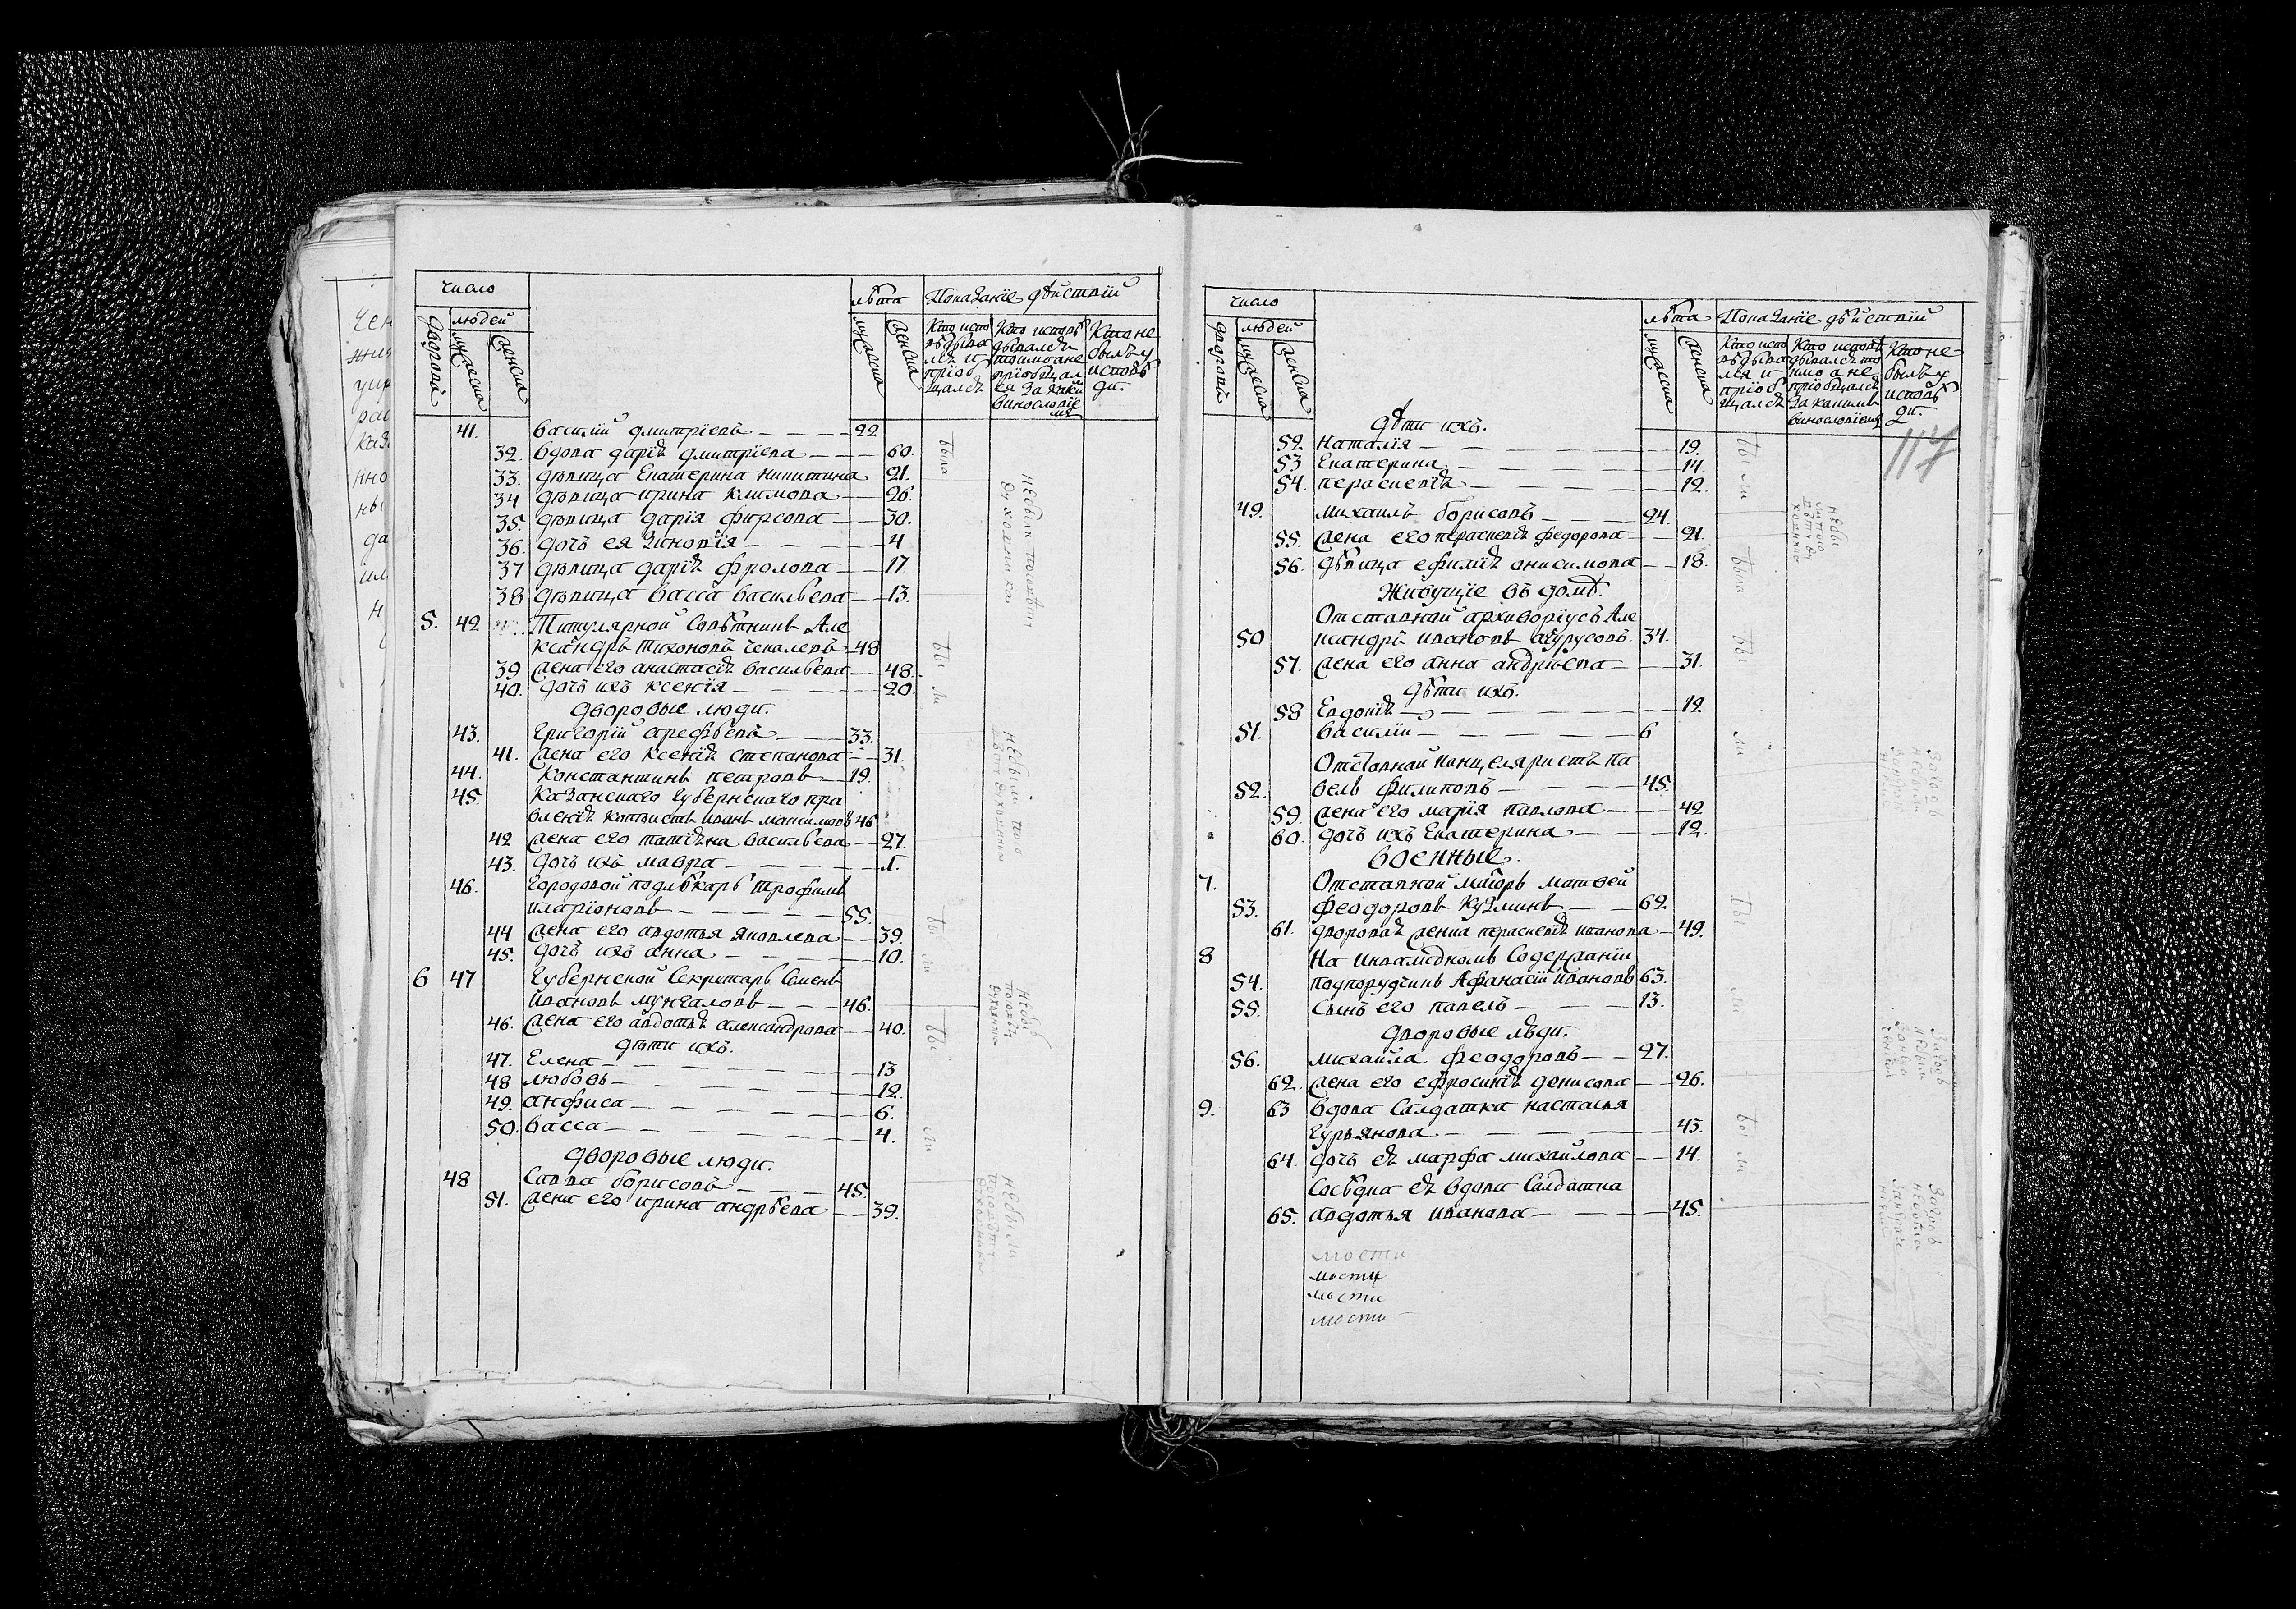 число
лѣта Показанїе дѣйствїй
людей
дворовъ
мужеска
женска
мужеска
женска
Кто испо
вѣдыва
лсѧ и
прїоб
щалсѧ
Кто исповѣ
дывалсѧ
токмо а не
прїобщал
сѧ за каки
винословїе
мъ
Кто не
былъ у
исповѣ
ди.
41. василїй дмитрїевъ 22
32. вдова дарїѧ дмитрїева 60.
33. дѣвица Екатерина никитина 21.
34 дѣвица ирина климова 26.
35. дѣвица дарїя фирсова 30.
36. дочь ея Зиновїя 4
37 дѣвица дарїѧ фролова 17
38 дѣвица васса васильева 13.
5. 42. Титулярной Совѣтникъ Але
ксандръ тихоновъ чекалевъ 48
39 жена его анастасїѧ васильева 48.
40. дочь ихъ ксенїя 20.
дворовые люди.
43. григорїй арефьевъ 33.
41. жена его ксенїѧ степанова 31.
44. константинъ петровъ 19.
45. казанскаго губернскаго пра
вленїѧ копїистъ иванъ максимовъ 46
42 жена его татїѧна васильева 27.
43. дочь ихъ мавра
46. городовой подлѣкарь трофимъ
иларїоновъ 55.
44 жена его авдотья яковлева 39.
45. дочь ихъ анна 10.
6 47 губернской Секретарь Семенъ
ивановъ мунгаловъ 46.
46. жена его авдотьѧ александрова 40.
дѣти ихъ.
47. Елена 13
48 любовь 12.
49. анфиса 6.
50. васса 4.
дворовые люди.
48 Савва борисовъ 45.
51. жена его ирина андрѣева 39.
были
бы
ли
бы
ли
бы
ли
число
лѣта Показанїе дѣйствїй
людей
дворовъ
мужеска
женска
мужеска
женска
Кто испо
вѣдыва
лся и
прїоб
щалсѧ
Кто исповѣ
дывалсѧ то
кмо а не
прїобщалсѧ
за какимъ
винословїемъ
Кто не
былъ у
исповѣ
ди.
117
дѣти ихъ.
52. наталїя 19.
53 Екатерина 14.
54. параскевїѧ 12.
49. михаилъ борисовъ 24.
55. жена его параскевїѧ федорова 21.
56. дѣвица ефимїѧ онисимова 18.
Живущїе въ домѣ.
Отставной архиварїусъ Але
50 ксандръ ивановъ 34.
57. жена его анна андрѣева 31.
дѣти ихъ.
58 Евдокїѧ 12
51. василїй 6
Отставной канцеляристъ па
52. велъ филиповъ 45.
59. жена его марїя павлова 42
60. дочь ихъ Екатерина 12.
военные.
7. Отставной маїоръ матвей
53. феодоровъ кузминъ 62.
61. двороваѧ женка параскевїѧ иванова 49.
8 На инвалидномъ Содержанїи
54. подпорутчикъ Афанасїй ивановъ 63.
55. Сынъ его павелъ 13.
дворовые люди.
56. михайла феодоровъ 27.
62. жена его ефросинїѧ денисова 26.
9. 63 вдова Салдатка настасья
гурьянова. 43.
64. дочь еѧ марфа михайлова 14.
Сосѣдка еѧ вдова Салдатка
65. авдотья иванова 45.
мости
мости
мости
мости
бы
ли
были
бы
ли
бы
ли
бы
ли